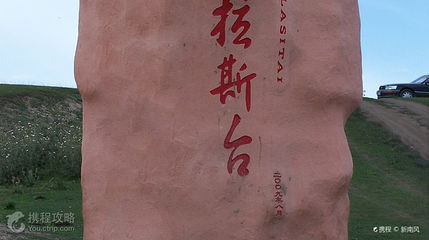 拉斯台
LASITAI
二〇〇九年八月
携程攻略
you.ctrip.com
携程 © 新南风